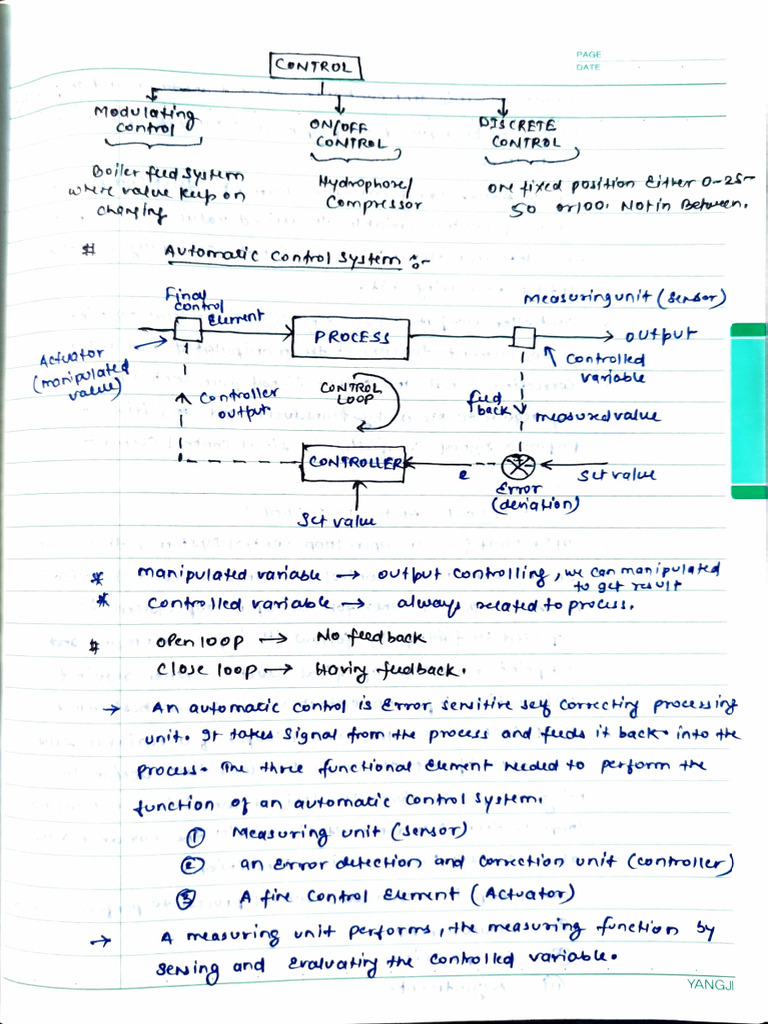 PAGE
DATE
CONTROL
Modulating control
ON/OFF CONTROL
DISCRETE CONTROL
Boiler feed system
where value keep on
changing
Hydrophore/
Compressor
one fixed position Either 0-25-
50 or 100. Not in Between.
# Automatic control system :-
Final control Element
measuring unit (sensor)
PROCESS
output
Actuator
(manipulated
value)
controlled
variable
Controller
output
CONTROL
LOOP
feed
back
measured value
CONTROLLER
e
Set value
Error
(deviation)
Set value
* manipulated variable → output controlling, we can manipulated
to get result
* controlled variable → always related to process.
# open loop → No feedback
Close loop → Having feedback.
→ An automatic control is Error sensitive self correcting processing
unit. It takes signal from the process and feeds it back into the
process. The three functional Element needed to perform the
function of an automatic control system.
① Measuring unit (sensor)
② an Error detection and correction unit (controller)
③ A fine control Element (Actuator)
→ A measuring unit performs, the measuring function by
sensing and Evaluating the controlled variable.
YANGJI